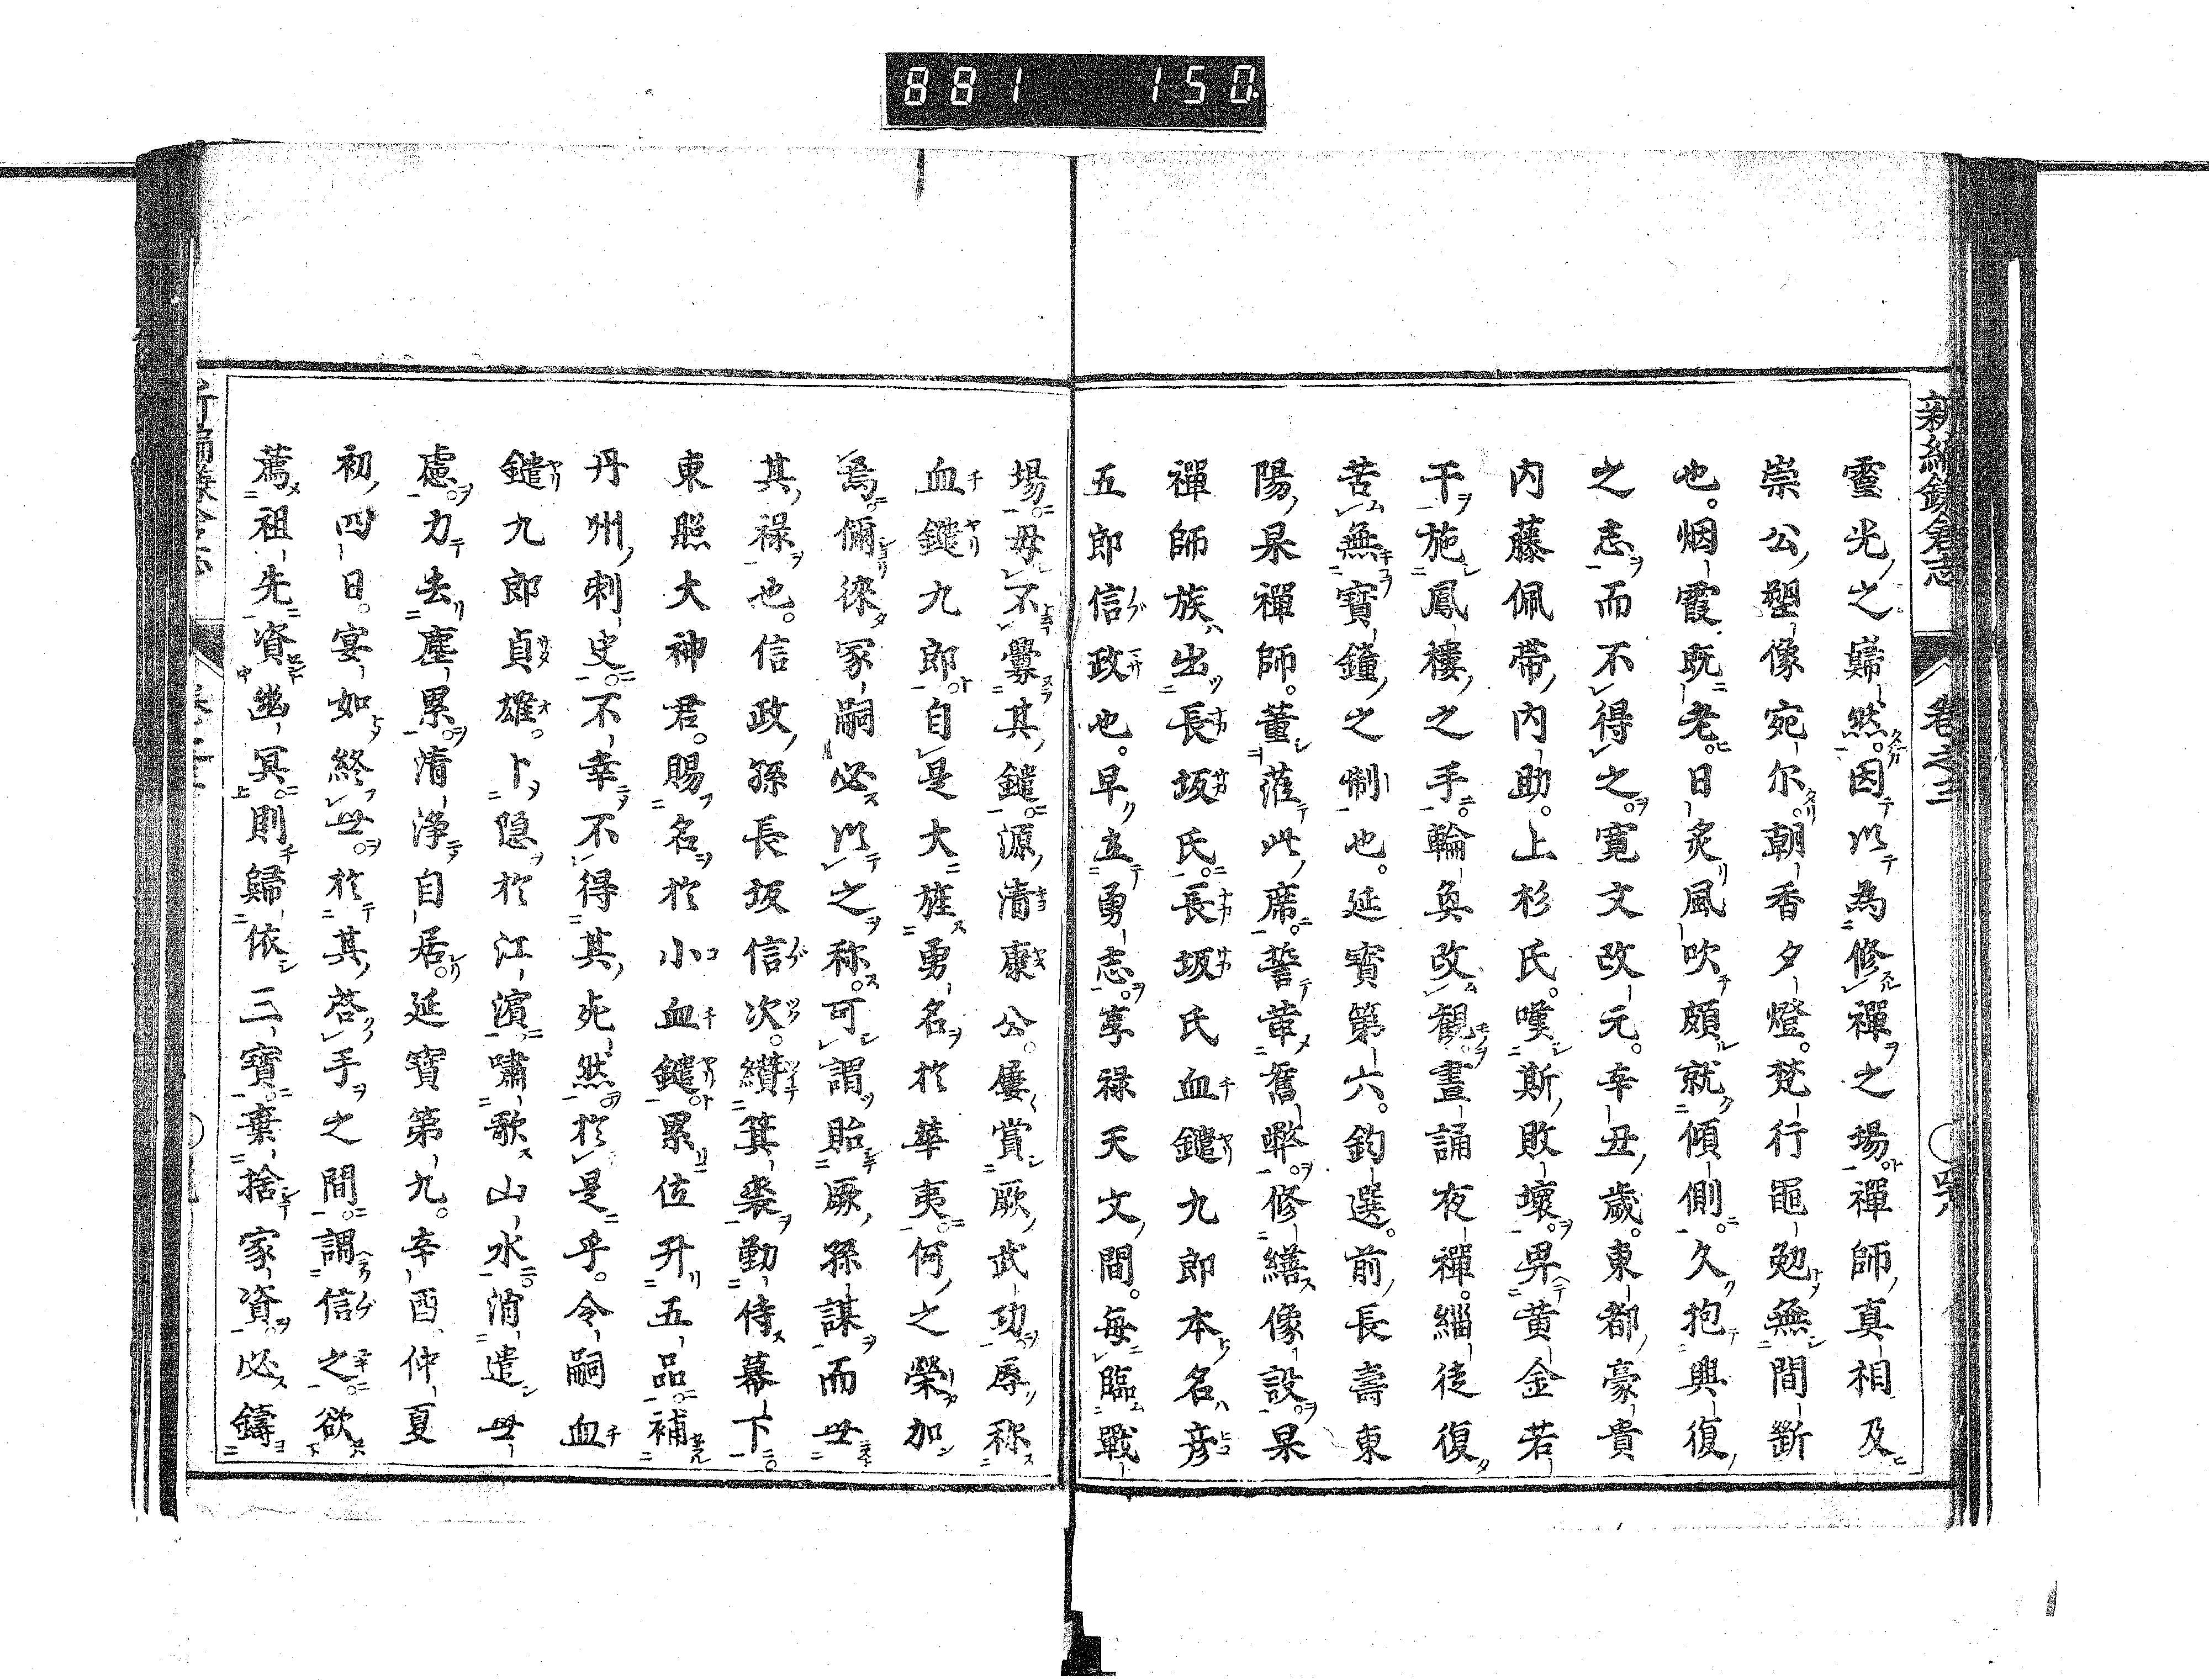 881 150
新編鎌倉志 卷之三
靈光之巋然因以為修禪之場禪師真相及
崇公塑像宛尓朝香夕燈梵行黽勉無間斷
也烟霞既老日炙風吹頗就傾側久抱興復
之志而不得之寛文改元辛丑歲東都豪貴
内藤佩帶内助上杉氏嘆斯敗壞畀黄金若
干施鳳樓之手輪奐改觀晝誦夜禪緇徒復
苦無寳鐘之制也延寳第六鈞選前長壽東
陽杲禪師董蒞此席誓革舊弊修繕像設杲
禪師族出長坂氏長坂氏血鑓九郎本名彦
五郎信政也早立勇志享禄天文間每臨戰
場毋不釁其鑓源清康公屢賞厥武功辱称
血鑓九郎自是大旌勇名於華夷何之榮加
焉儞後冢嗣必以之称可謂貽厥孫謀而世
其禄也信政孫長坂信次纘箕裘勤侍幕下
東照大神君賜名於小血鑓累位升五品補
丹州刺史不幸不得其死然於是乎令嗣血
鑓九郎貞雄卜隠於江濵嘯歌山水消遣世
慮力去塵累清浄自居延寳第九辛酉仲夏
初四日宴如終世於其啓手之間謂信之欲
薦祖先資幽冥則歸依三寳棄捨家資必鑄